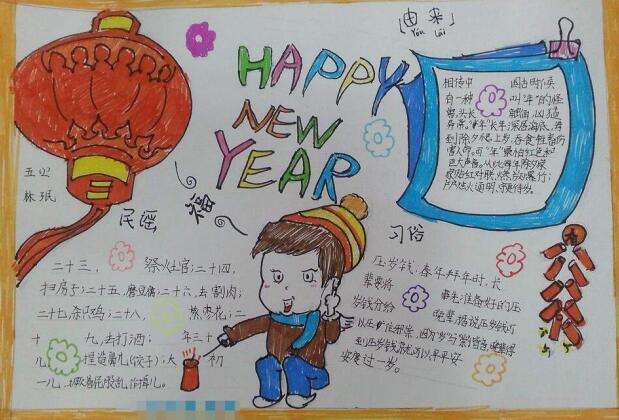 [由来]
Yóu Lái
HAPPY
NEW
YEAR
相传中 国古时候
有一种 叫"年"的怪
兽,头长 触角,凶猛
异常。"年"长年深居海底,每
到除夕爬上岸,吞食牲畜伤
害人命,而"年"最怕红色和
巨大声音。从此每年除夕家
家贴红对联、燃放爆竹;
户户烛火通明,守更待岁。
五
林珉
福
民谣
二十三, 祭灶官;二十四,
扫房子;二十五,磨豆腐;二十六,去割肉;
二十七,杀只鸡;二十八, 蒸枣花;二
十 九,去打酒; 年三十
儿 捏造鼻儿(饺子);大 初
一儿,撅着屁股乱作揖儿。
习俗
压岁钱:春年拜年时,长
辈要将 事先准备好的压
岁钱分给 晚辈,据说压岁钱可
以压住邪祟,因为"岁"与"祟"谐音,晚辈得
到压岁钱就可以平平安安
度过一岁。